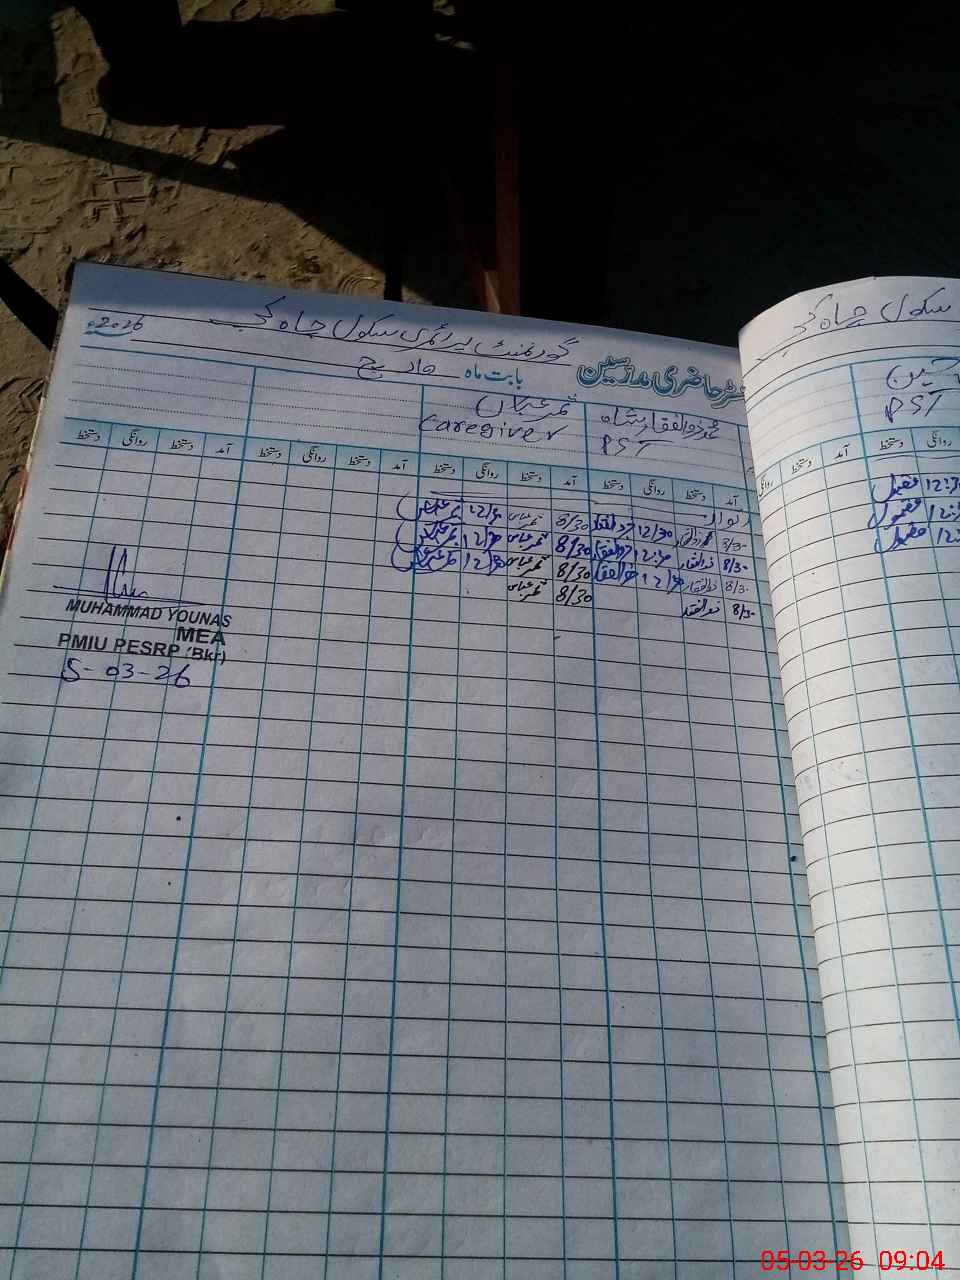 گورنمنٹ پرائمری سکول چاہ
2026ء
رجسٹر حاضری مدرسین بابت ماہ مارچ
محمد ذوالفقار شاہ
PST
قمر عباس
Caregiver
آمد دستخط روانگی دستخط آمد دستخط روانگی دستخط آمد دستخط روانگی دستخط آمد دستخط روانگی دستخط
اتوار
8/30 12/30 8/30 قمر عباس 12/30 قمر عباس
8/30 ذوالفقار 12:30 ذوالفقار 8/30 قمر عباس 12/30 قمر عباس
8/30 ذوالفقار 12/30 ذوالفقار 8/30 قمر عباس 12/30 قمر عباس
8/30 ذوالفقار 8/30 قمر عباس
MUHAMMAD YOUNAS
MEA
PMIU PESRP (Bkr)
5-03-26
سکول چاہ
PST
آمد دستخط روانگی
12:30
05-03-26 09:04